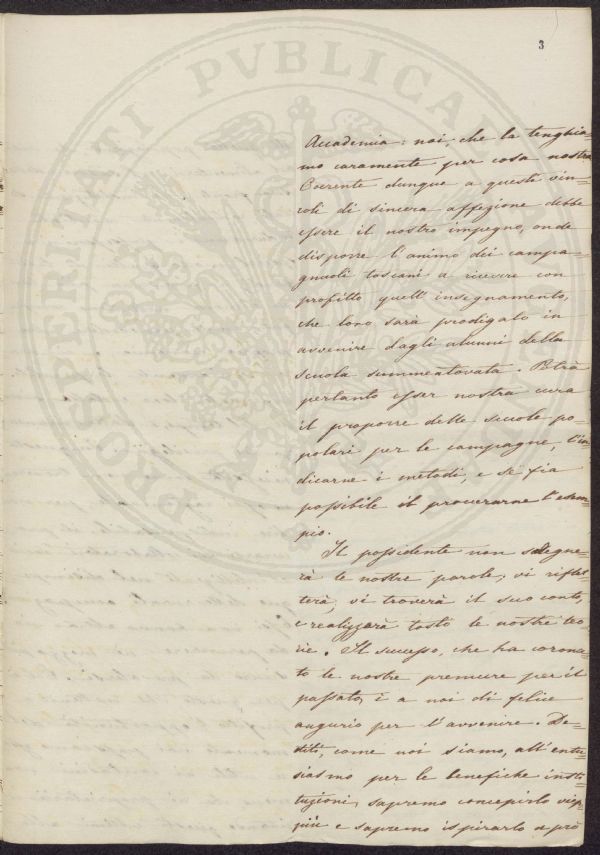 3
PROSPERITATI PVBLICAE
Accademia: noi, che la tenghia=
mo caramente per cosa nostra
Coerente dunque a questi vin=
coli di sincera affezione debbe
essere il nostro impegno, onde
disporre l'animo dei campa=
gnuoli toscani a ricevere con
profitto quell'insegnamento,
che loro sarà prodigato in
avvenire dagli alunni della
scuola summentovata. Potrà
pertanto esser nostra cura
il proporre delle scuole po=
polari per le campagne, l'in=
dicarne i metodi, e se fia
possibile il procurarne l'esem=
pio.
Il possidente non sdegne=
rà le nostre parole, vi riflet=
terà, vi troverà il suo conto,
e realizzarà tosto le nostre teo=
rie. Il successo, che ha corona=
to le nostre premure per il
passato, è a noi di felice
augurio per l'avvenire. De=
diti, come noi siamo, all'entu=
siasmo per le benefiche insti=
tuzioni, sapremo concepirlo vie=
più e sapremo ispirarlo a prò